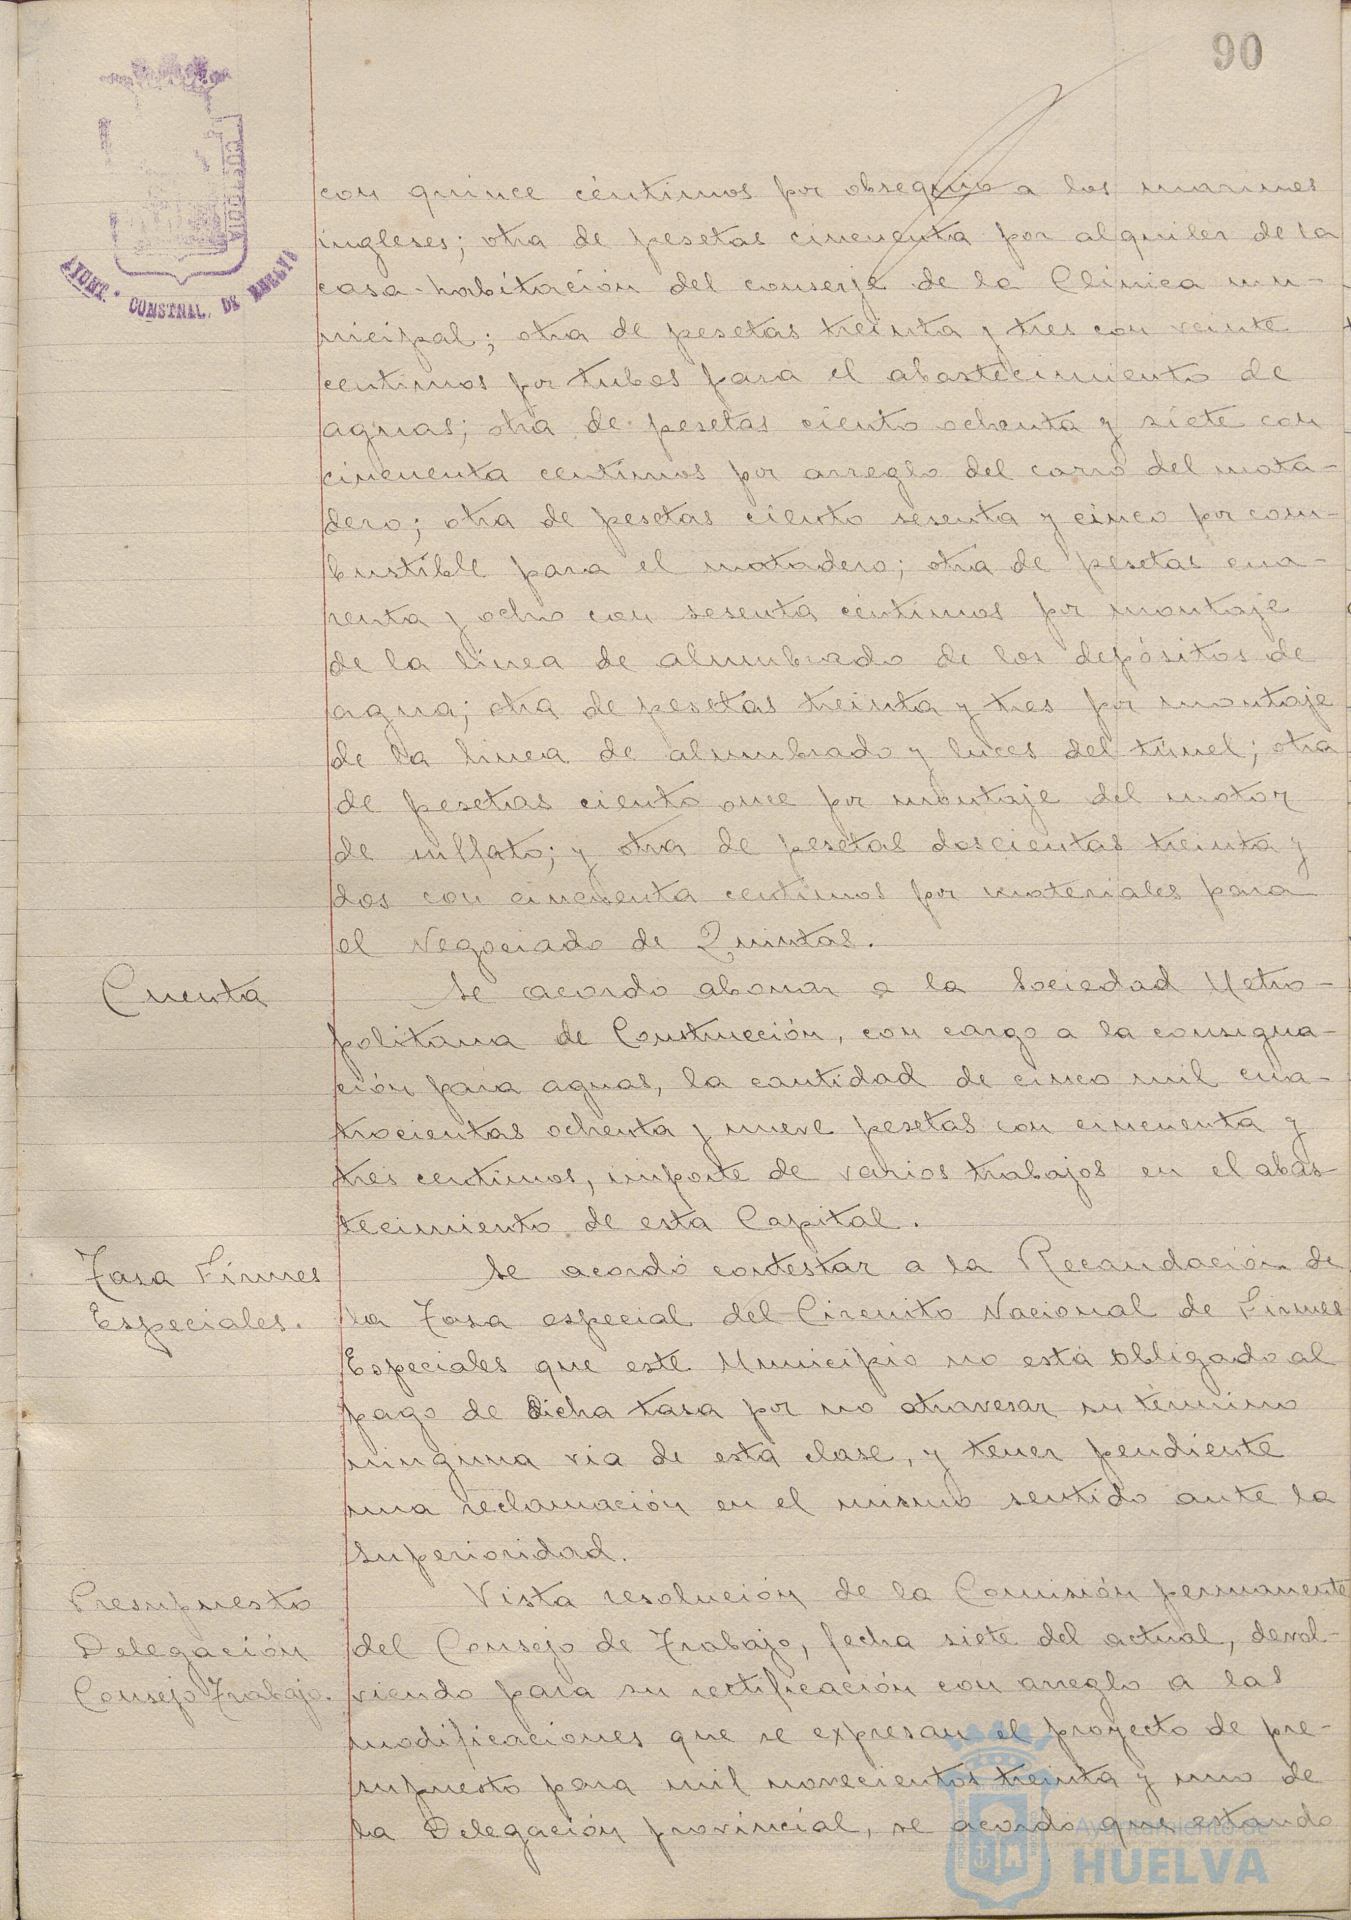 90
AYUNT. CONSTNAL. DE HUELVA
con quince céntimos por obsequio a los marinos
ingleses; otra de pesetas cincuenta por alquiler de la
casa-habitación del conserje de la Clinica mu-
nicipal; otra de pesetas treinta y tres con veinte
centimos por tubos para el abastecimiento de
aguas; otra de pesetas ciento ochenta y siete con
cincuenta centimos por arreglo del carro del mata-
dero; otra de pesetas ciento sesenta y cinco por com-
bustible para el matadero; otra de pesetas cua-
renta y ocho con sesenta céntimos por montaje
de la línea de alumbrado de los depósitos de
agua; otra de pesetas treinta y tres por montaje
de la linea de alumbrado y luces del túnel; otra
de pesetas ciento once por montaje del motor
de sulfato; y otra de pesetas doscientas treinta y
dos con cincuenta centimos por materiales para
el Negociado de Quintas.
Cuenta
Se acordo abonar a la Sociedad Metro-
politana de Construcción, con cargo a la consigna-
ción para aguas, la cantidad de cinco mil cua-
trocientas ochenta y nueve pesetas con cincuenta y
tres centimos, importe de varios trabajos en el abas-
tecimiento de esta Capital.
Tasa Firmes
Especiales.
Se acordó contestar a la Recaudación de
la Tasa especial del Circuito Nacional de Firmes
Especiales que este Municipio no está obligado al
pago de dicha tasa por no atravesar su término
ninguna via de esta clase, y tener pendiente
una reclamación en el mismo sentido ante la
Superioridad.
Presupuesto
Delegación
Consejo Trabajo.
Vista resolución de la Comisión permanente
del Consejo de Trabajo, fecha siete del actual, devol-
viendo para su rectificación con arreglo a las
modificaciones que se expresan el proyecto de pre-
supuesto para mil novecientos treinta y uno de
la Delegación provincial, se acordo que estando
Ayuntamiento de
HUELVA